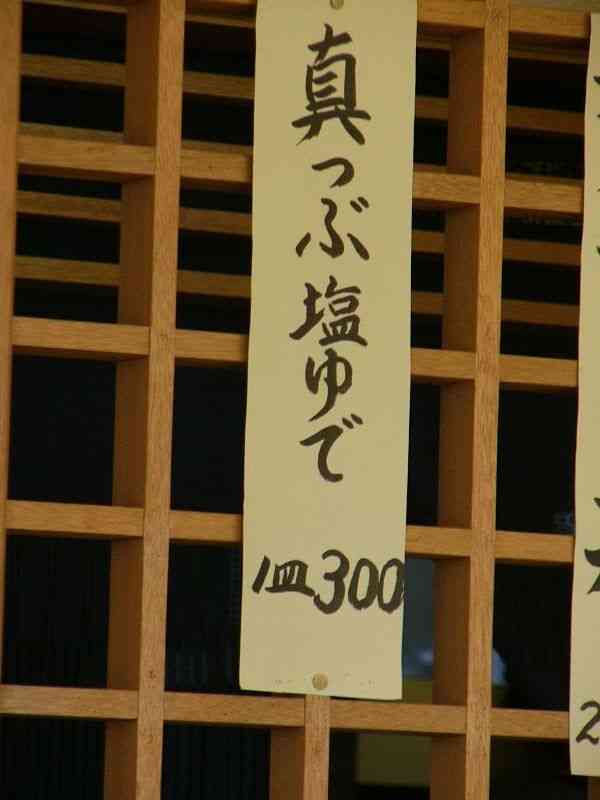 真つぶ塩ゆで
1皿300